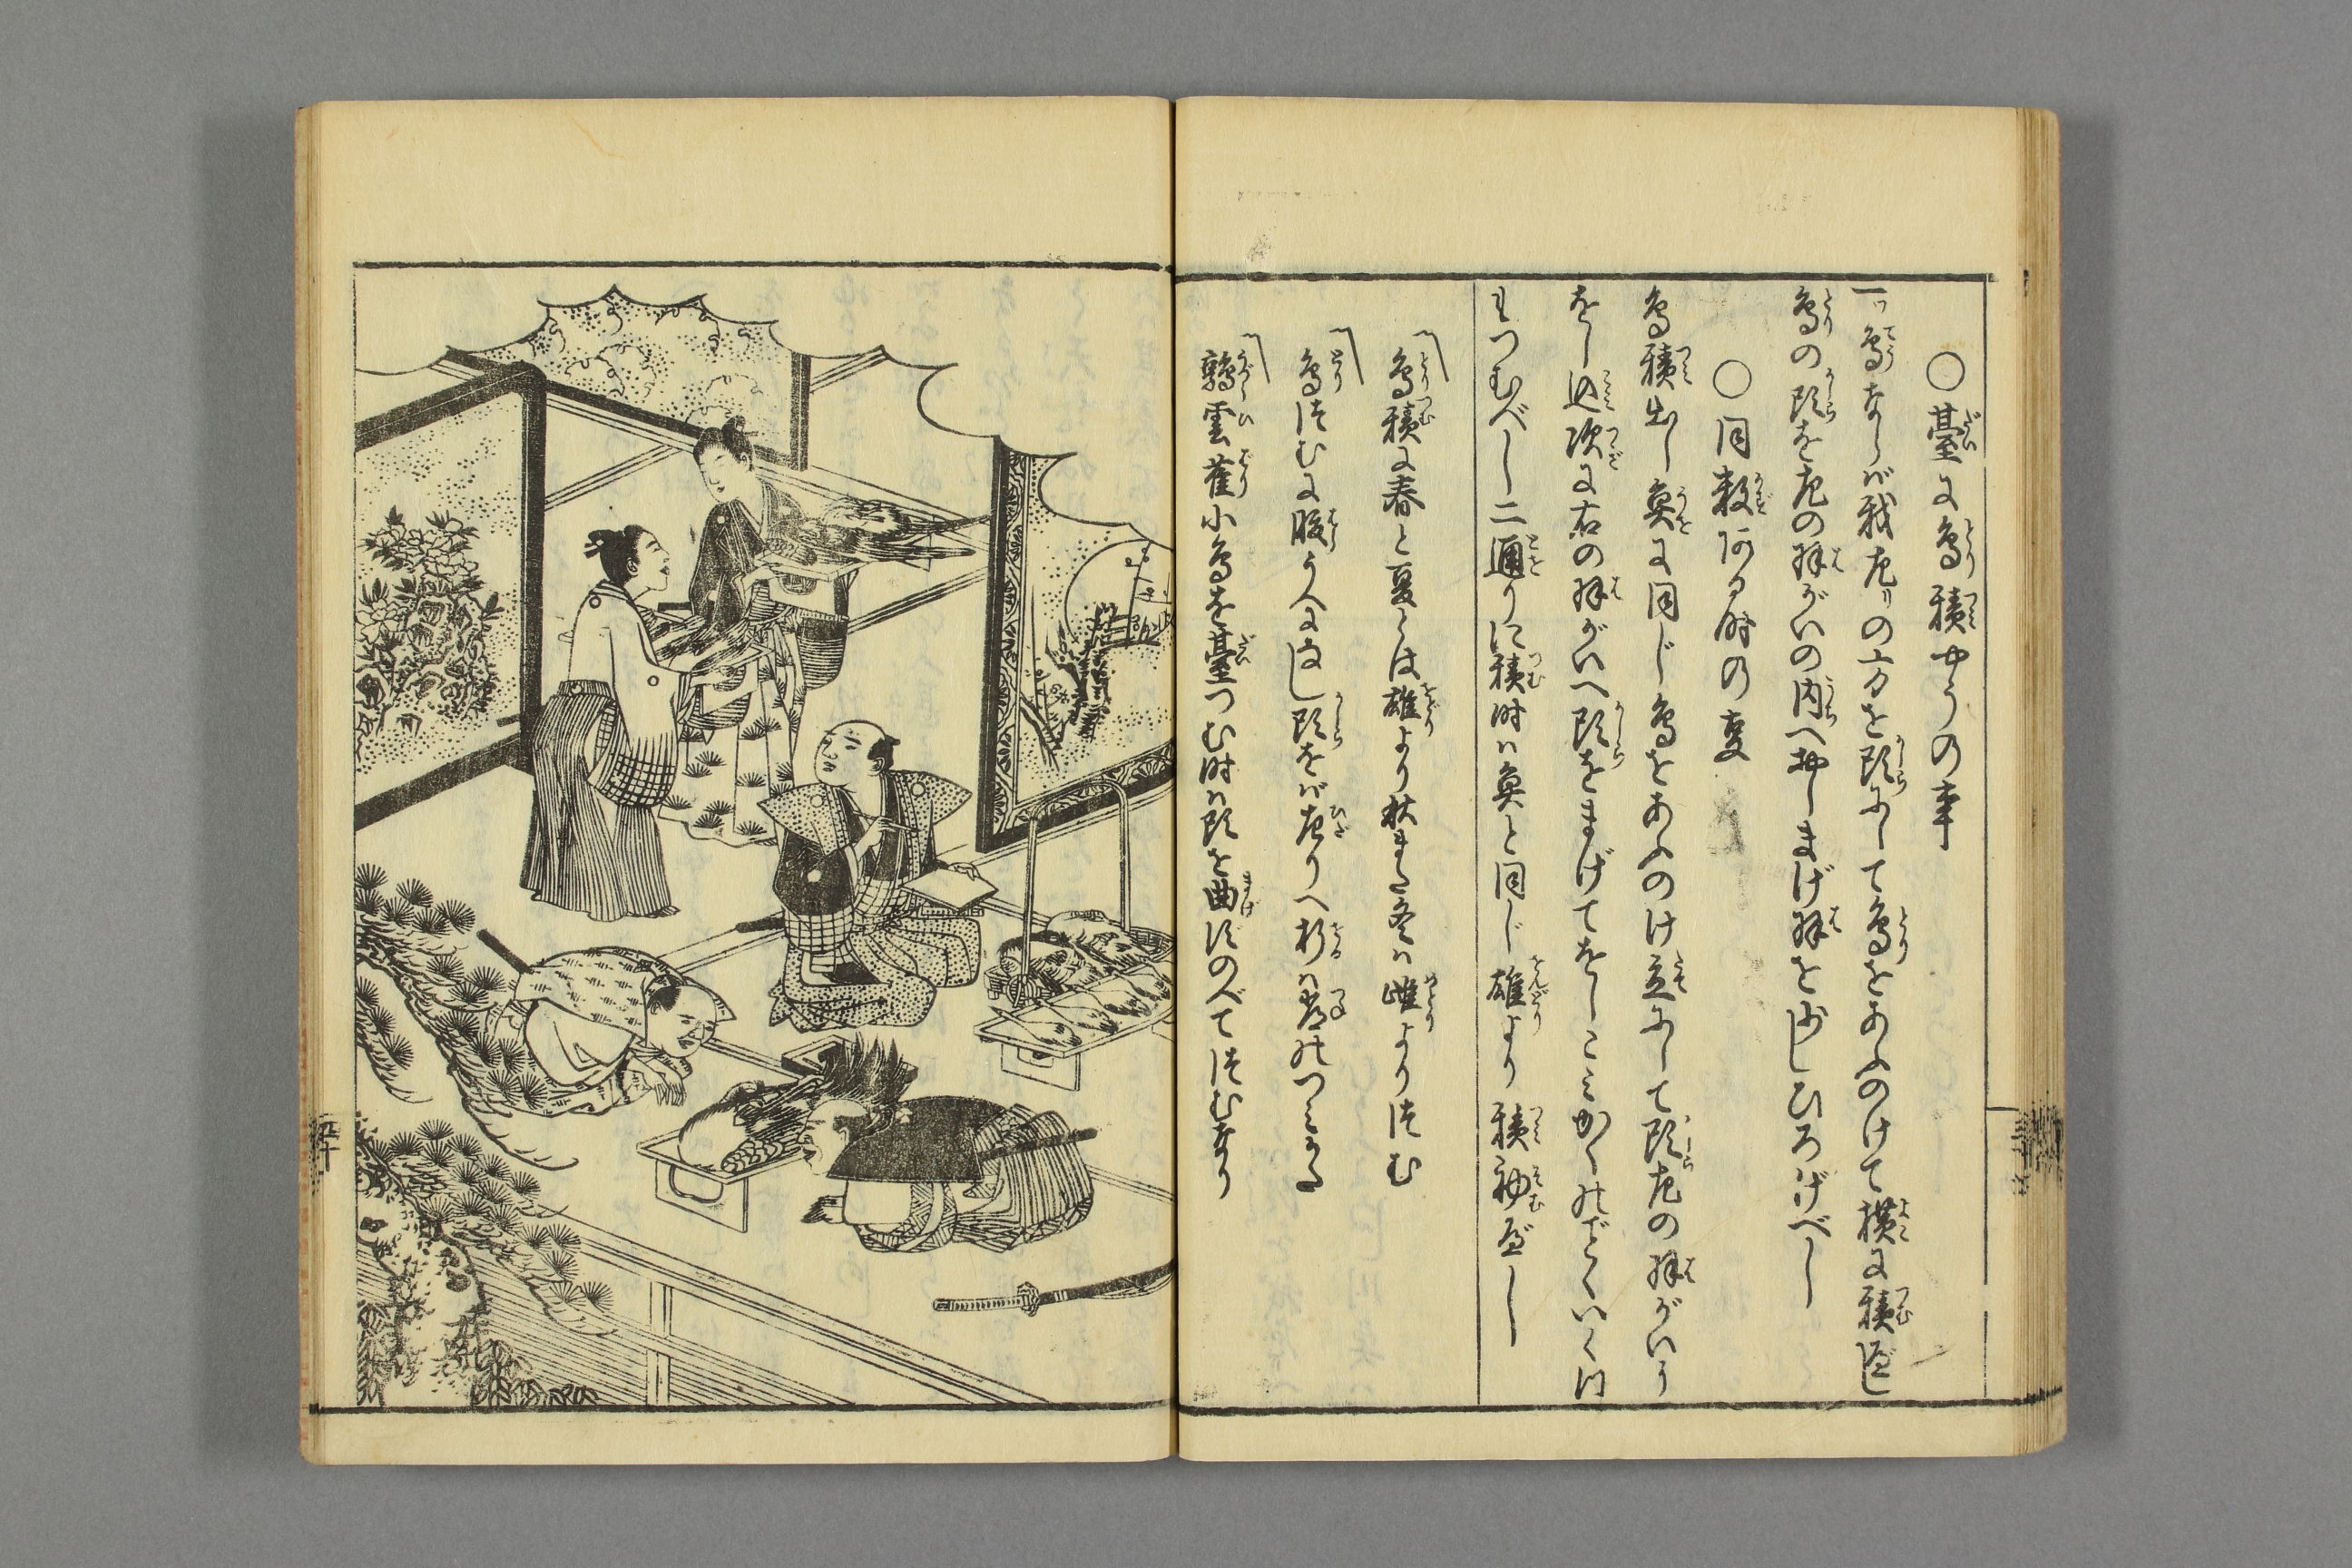 ○臺に鳥積やうの事
一鳥ならば我左の方を頭にして鳥をあふのけて横に積べし
鳥の頭を左の羽がいの内へ押しまげ羽を少しひろげべし
○同数ある時の事
鳥積出し魚に同じ鳥をあふのけ立にして頭左の羽がいう
をし込次に右の羽がいへ頭をまげてをしこみかくのごとくいくつ
もつむべし二通りに積時ハ魚と同じ雄より積初べし
鳥積に春と夏とは雄より秋また冬ハ雌より
つむ
鳥つむに腹うへになし頭をば左りへ折ハ常のつみかた
鶉雲雀小鳥を臺つむ時ハ頭を曲ずのべてつむなり